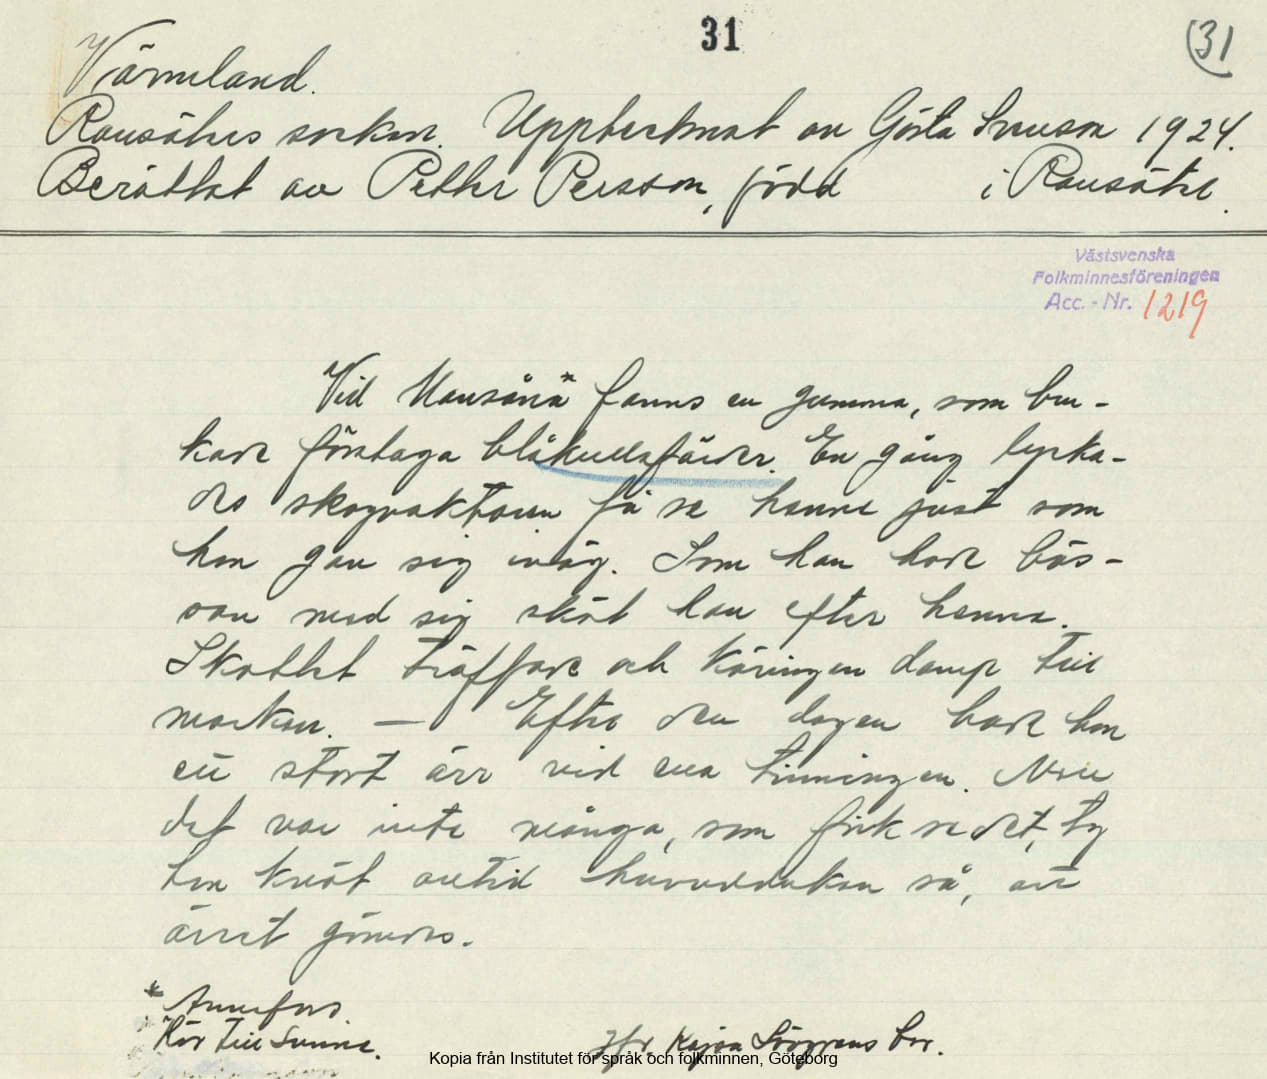 31
(31
Värmland.
Ransäters socken. Upptecknat av Gösta Svenson 1924.
Berättat av Petter Persson, född i Ransäter.
Västsvenska
Folkminnesföreningen
Acc. - Nr. 1219
Vid * fanns en gumma, som bru-
kade företaga blåkullafärder. En gång lycka-
des skogvaktaren få se henne just som
hon gav sig iväg. Som han hade bös-
san med sig sköt han efter henne.
Skottet träffade och käringen damp till
marken. — Efter den dagen hade hon
ett stort ärr vid ena tinningen. Men
det var inte många, som fick se det, ty
hon knöt alltid huvudduken så, att
ärret gömdes.
* Annefors.
Hör till Sunne.
Jfr. Kajsa
Kopia från Institutet för språk och folkminnen, Göteborg